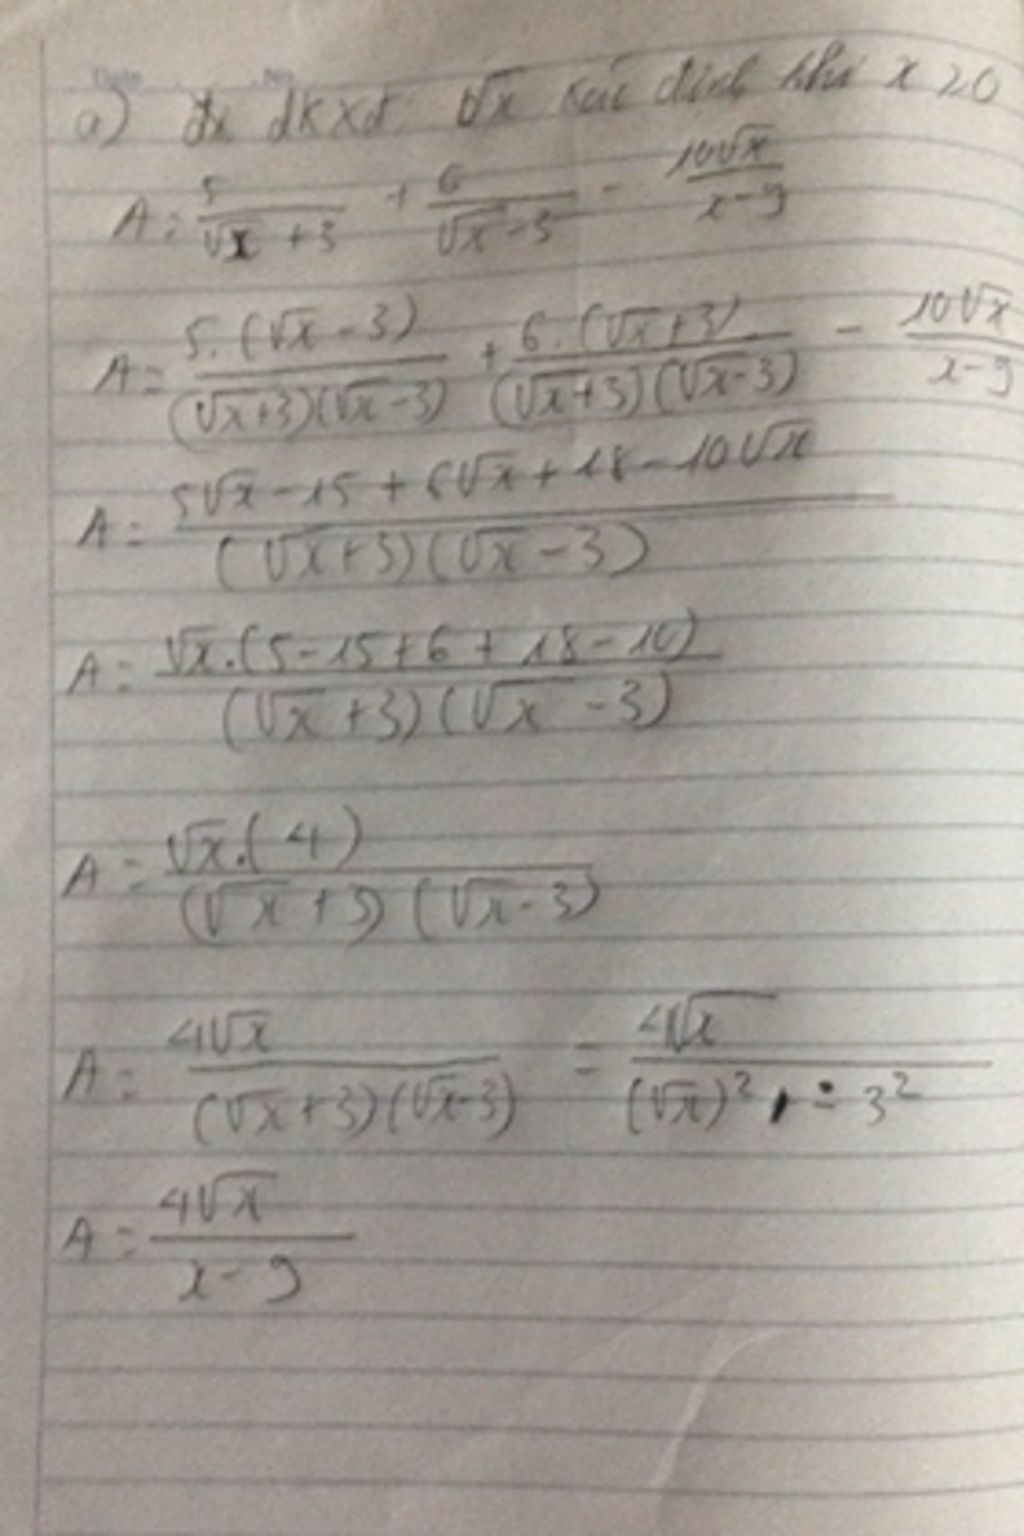 Date No
a) đk đkxđ: √x xác định khi x ≥ 0
A = 5/(√x + 3) + 6/(√x - 3) - 10√x/(x - 9)
A = 5.(√x - 3)/((√x+3)(√x-3)) + 6.(√x+3)/((√x+3)(√x-3)) - 10√x/(x-9)
A = (5√x - 15 + 6√x + 18 - 10√x)/((√x+3)(√x-3))
A = √x.(5-15+6+18-10)/((√x+3)(√x-3))
A = √x.(4)/((√x+3)(√x-3))
A = 4√x/((√x+3)(√x-3)) = 4√x/((√x)² - 3²)
A = 4√x/(x-9)